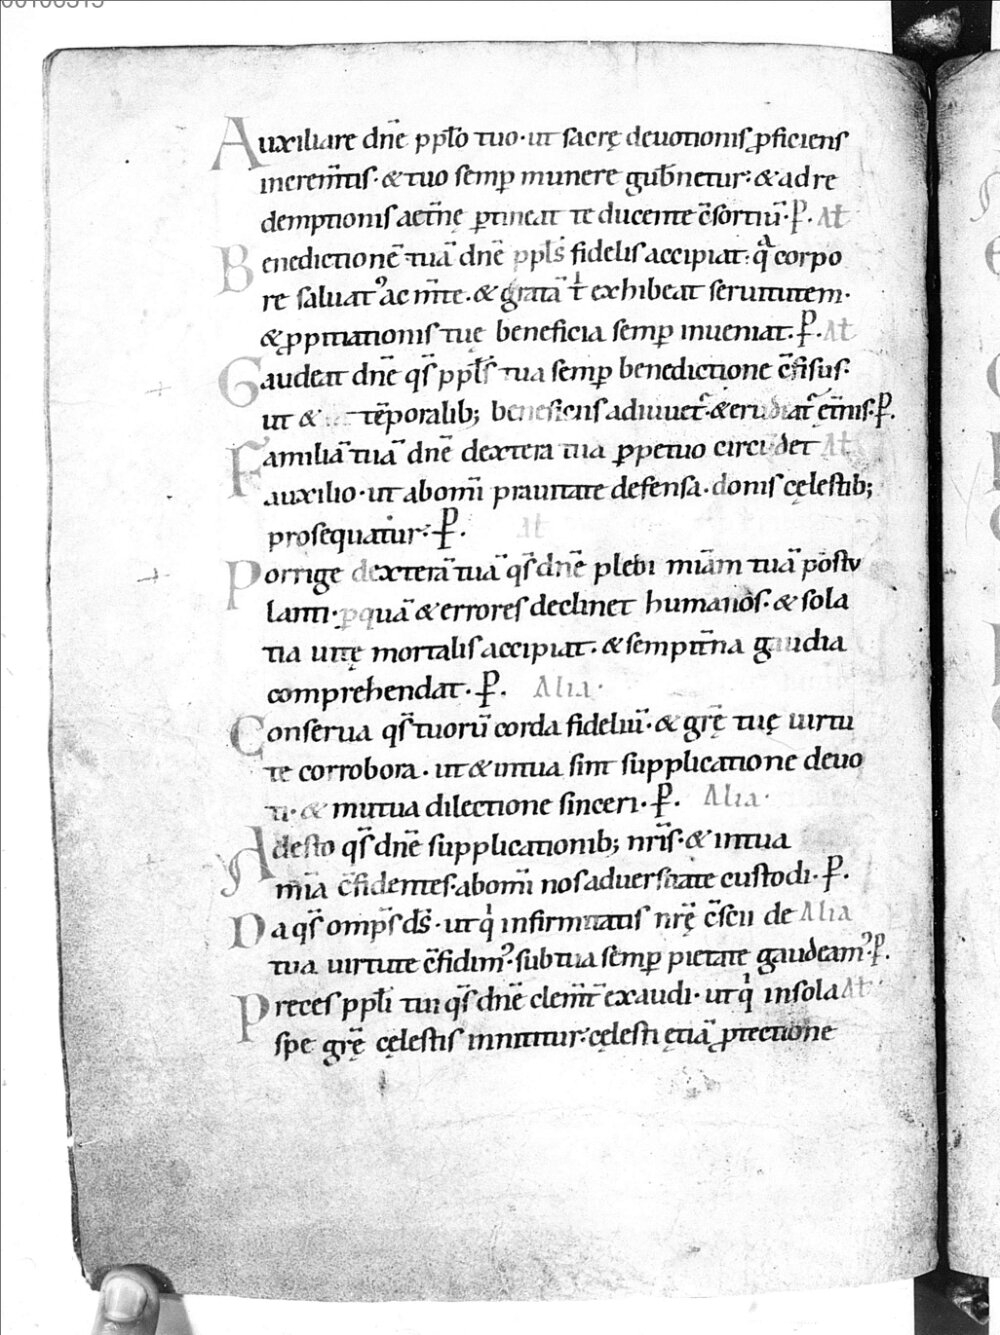 Auxiliare dn̄e pp̄lo tuo· ut sacrę deuotionis ꝓficiens
increm̄tis· & tuo semꝑ munere gub̄netur: & ad re
demptionis aet̄nę ꝑtineat te ducente c̄sortiū· ꝑ· At
Benedictionē tuā dn̄e pp̄ls fidelis accipiat: qͣ corpo
re saluatꝰ ac m̄te· & gratā t exhibeat seruitutem·
& ꝓpitiationis tuę beneficia semꝑ inueniat· ꝑ· At
Gaudeat dn̄e qs̄ pp̄ls tua semꝑ benedictione c̄fisus·
ut & tēporalib; beneficiis adiuuet᷑· & erudiat᷑ et̄nis· ꝑ·
Familiā tuā dn̄e dextera tua ꝑpetuo circūdet At
auxilio· ut ab om̄i prauitate defensa· donis cęlestib;
prosequatur: ꝑ· At
Porrige dexterā tuā qs̄ dn̄e plebi miām tuā postu
lanti· ꝑ quā & errores declinet humanos· & sola
tia uitę mortalis accipiat· & sempit̄na gaudia
comprehendat· ꝑ· Alia·
Conserua qs̄ tuorū corda fideliū· & grę̄ tuę uirtu
te corrobora· ut & in tua sint supplicatione deuo
ti· & mutua dilectione sinceri· ꝑ· Alia·
Adesto qs̄ dn̄e supplicationib; nrīs· & in tua
mīa c̄fidentes· ab om̄i nos aduersitate custodi· ꝑ·
Da qs̄ omps̄ ds̄· ut qͥ infirmitatis nrę̄ c̄scii de Alia
tua uirtute c̄fidimꝰ· sub tua semꝑ pietate gaudeamꝰ· ꝑ·
Preces pp̄li tui qs̄ dn̄e clem̄t᷑ exaudi· ut qͥ in sola At·
spe grę̄ cęlestis innititur: cęlesti etiā ꝓtectione